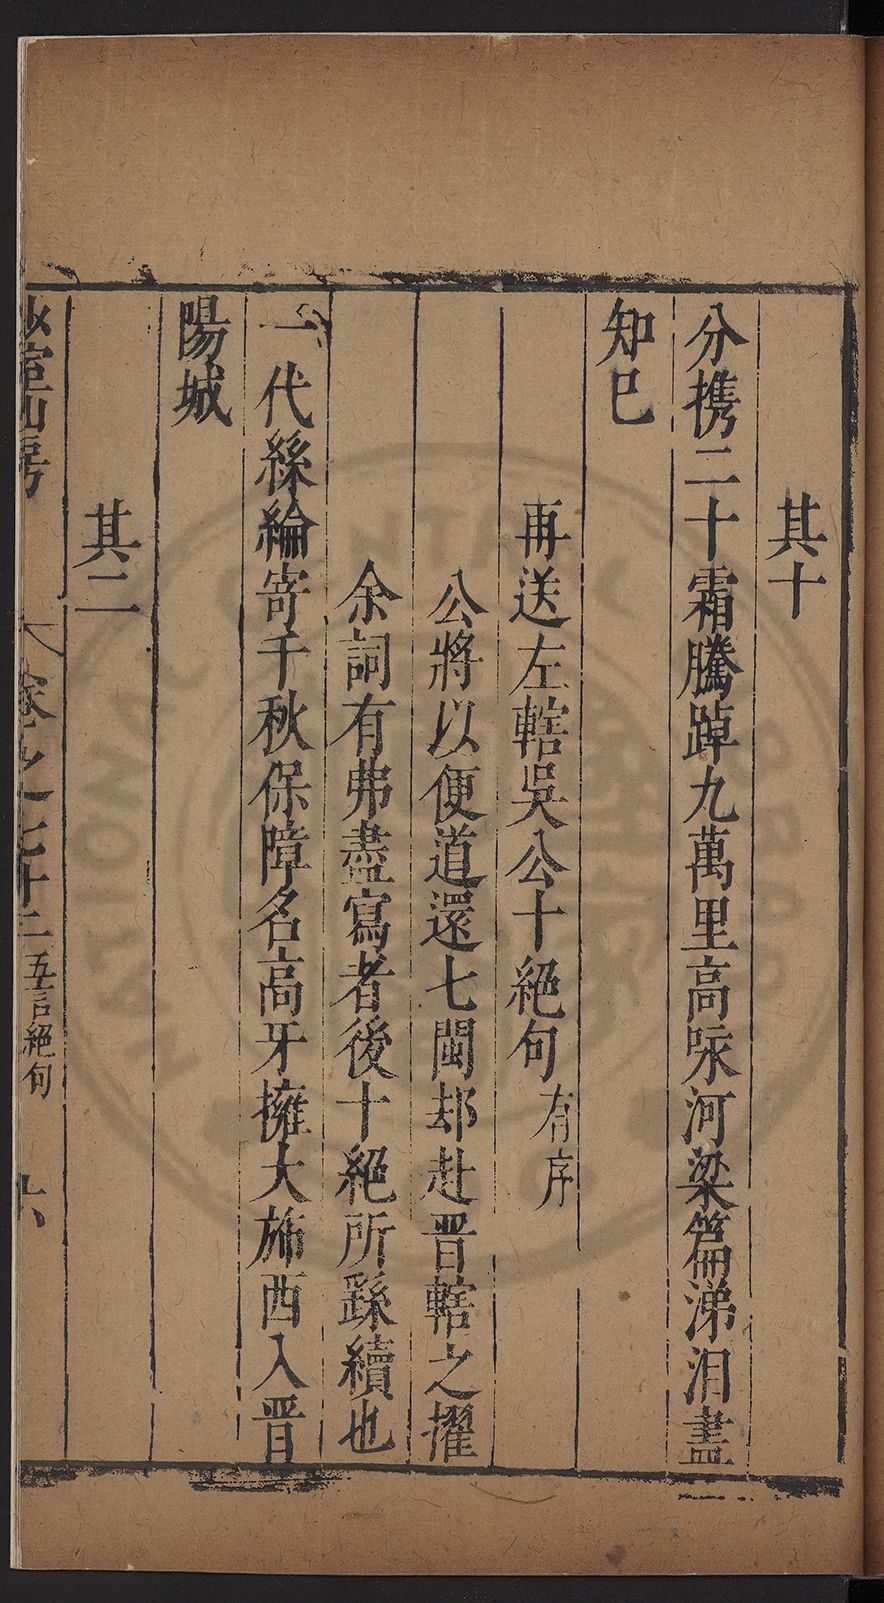 其十
分携二十霜騰踔九萬里高咏河梁篇涕泪盡
知巳
再送左轄吳公十絕句有序
公將以便道還七閩却赴晋轄之擢
余詞有弗盡寫者後十絕所繇續也
一代絲綸寄千秋保障名高牙擁大斾西入晋
陽城
其二
室山房
卷之七十二五言絕句
六